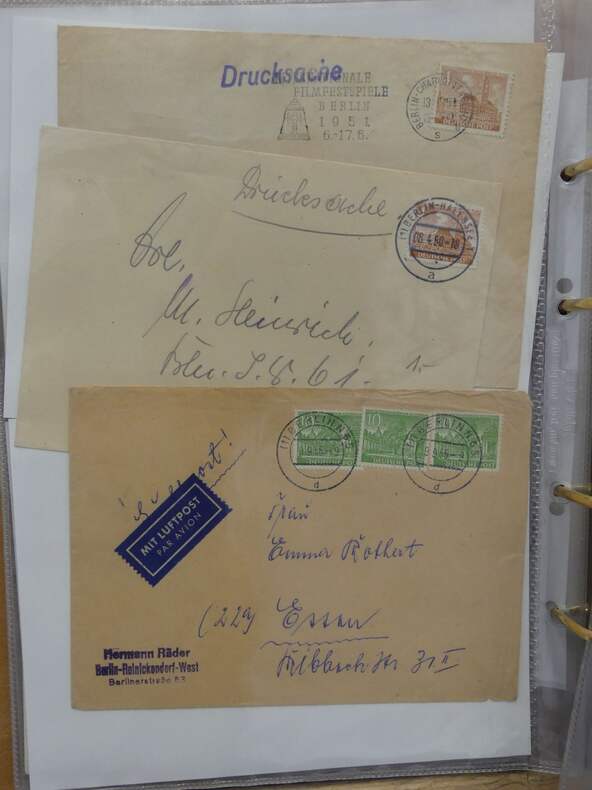 Drucksache
NALE
FILMFESTSPIELE
BERLIN
1951
6.-17.6.
BERLIN-CHAR
DEUTSCHE POST
s
Drucksache
(1) BERLIN-HAL
08.4.50-18
a
M. Heinrich,
Bln. S.W. 61.
1.-
(1) BERLIN N
d
10
(1) BERLIN N
d
Luftpost!
MIT LUFTPOST
PAR AVION
Frau
Emmer Rothert
(22a) Essen
Hermann Räder
Berlin-Reinickendorf-West
Berlinerstraße 63